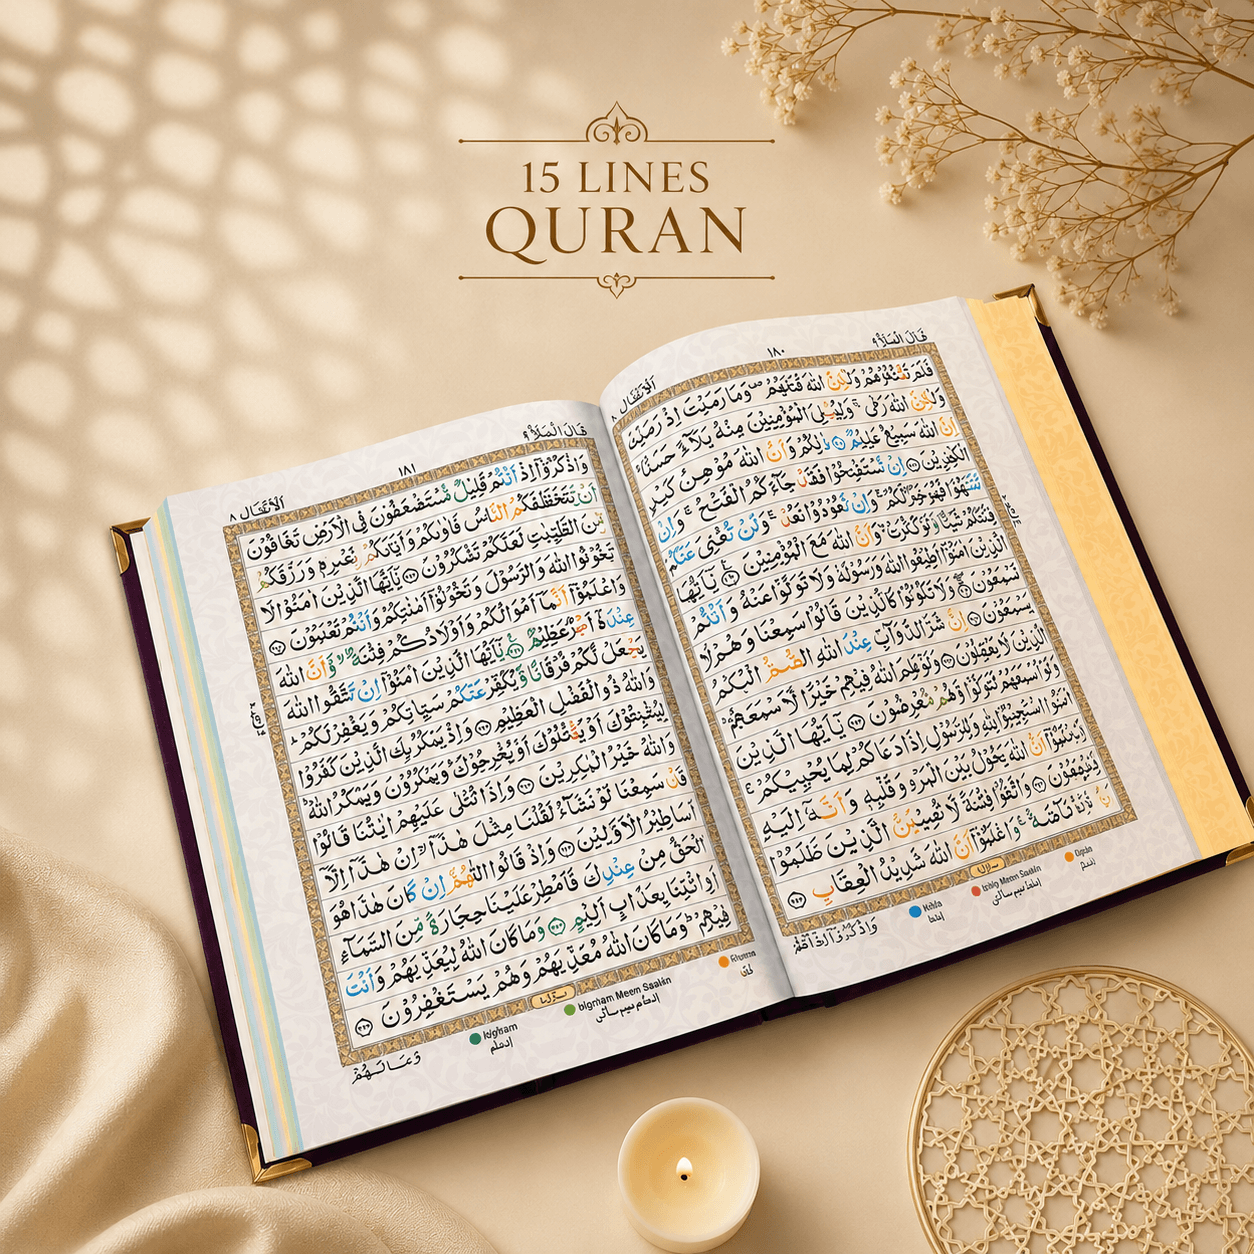 15 LINES
QURAN
قال الملأ ٩
١٨٠
الانفال ٨
ولكن الله قتلهم وما رميت اذ
ولكن الله رمى وليبلي المؤمنين منه بلاء حسنا
ان الله سميع عليم وان الله موهن
الكفرين ان تستفتحوا فقد جاءكم الفتح وان
وان تعودوا نعد ولن تغنى عنكم
وان الله مع المؤمنين يايها
الذين امنوا اطيعوا الله ورسوله ولا تولوا عنه وانتم
تسمعون ولا تكونوا كالذين قالوا سمعنا وهم لا
يسمعون ان شر الدواب عند الله الصم البكم
الذين لا يعقلون ولو علم الله فيهم خيرا لاسمعهم
ولو اسمعهم لتولوا وهم معرضون يايها الذين
امنوا استجيبوا لله وللرسول اذا دعاكم لما يحييكم
ان الله يحول بين المرء وقلبه وانه اليه
واتقوا فتنة لا تصيبن الذين ظلموا
خاصة واعلموا ان الله شديد العقاب
منزل ٢
Ikhfa
اخفا
Idgham Meem Saakin
ادغام ميم ساكن
قال الملأ ٩
١٨١
الانفال ٨
واذكروا اذ انتم قليل مستضعفون فى الارض تخافون
ان يتخطفكم الناس فاوىكم وايدكم بنصره ورزقكم
من الطيبت لعلكم تشكرون يايها الذين امنوا لا
تخونوا الله والرسول وتخونوا امنتكم وانتم تعلمون
واعلموا انما اموالكم واولادكم فتنة وان الله
عنده اجر عظيم يايها الذين امنوا ان تتقوا الله
يجعل لكم فرقانا ويكفر عنكم سياتكم ويغفر لكم
والله ذو الفضل العظيم واذ يمكر بك الذين كفروا
ليثبتوك او يقتلوك او يخرجوك ويمكرون ويمكر الله
والله خير المكرين واذا تتلى عليهم ايتنا قالوا
قد سمعنا لو نشاء لقلنا مثل هذا ان هذا الا
اساطير الاولين واذ قالوا اللهم ان كان هذا هو
الحق من عندك فامطر علينا حجارة من السماء
او ائتنا بعذاب اليم وما كان الله ليعذبهم وانت
فيهم وما كان الله معذبهم وهم يستغفرون
منزل ٢
Idgham
ادغام
Idgham Meem Saakin
ادغام ميم ساكن
وما لهم